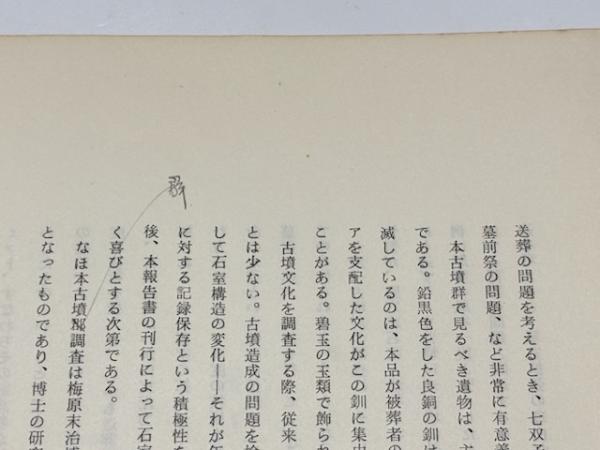 送葬の問題を考えるとき、七双子
墓前祭の問題、など非常に有意義
本古墳群で見るべき遺物は、主
である。鉛黒色をした良銅の釧は
滅しているのは、本品が被葬者の
アを支配した文化がこの釧に集中
ことがある。碧玉の玉類で飾られ
古墳文化を調査する際、従来
とは少ない。古墳造成の問題を
して石室構造の変化――それが
に対する記録保存という積極性を
後、本報告書の刊行によって石室
く喜びとする次第である。
なほ本古墳調査は梅原末治博
となったものであり、博士の研究